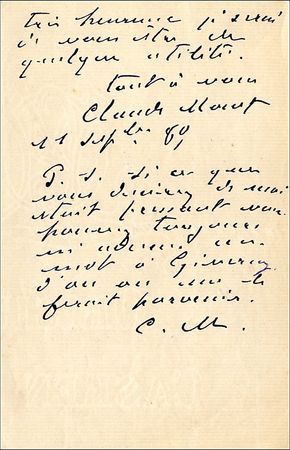 très heureux si je serai
à vous être de
quelque utilité.
tout à vous
Claude Monet
11 sep^bre 89
P. S. Si ce que
vous désirez de moi
était pressant vous
pouvez toujours
m'adresser un
mot à Giverny
d'où on me le
ferait parvenir.
C. M.